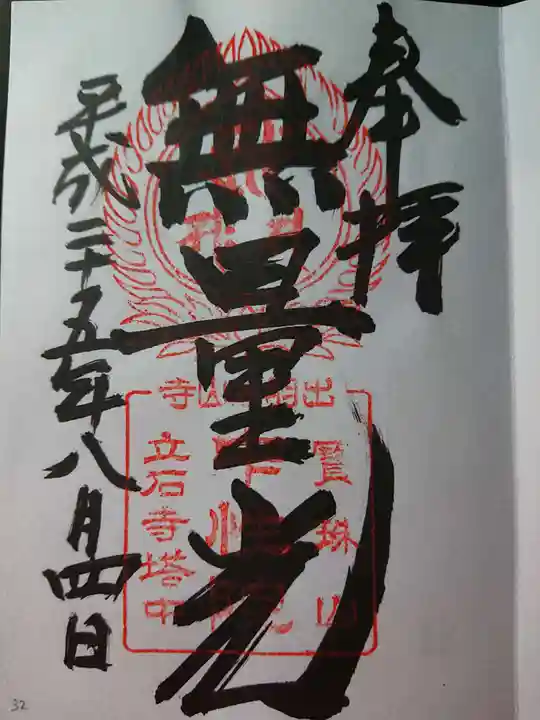 奉拝
無量光
平成二十五年八月四日
出羽山寺
賢珠山
中性院
立石寺塔中
32